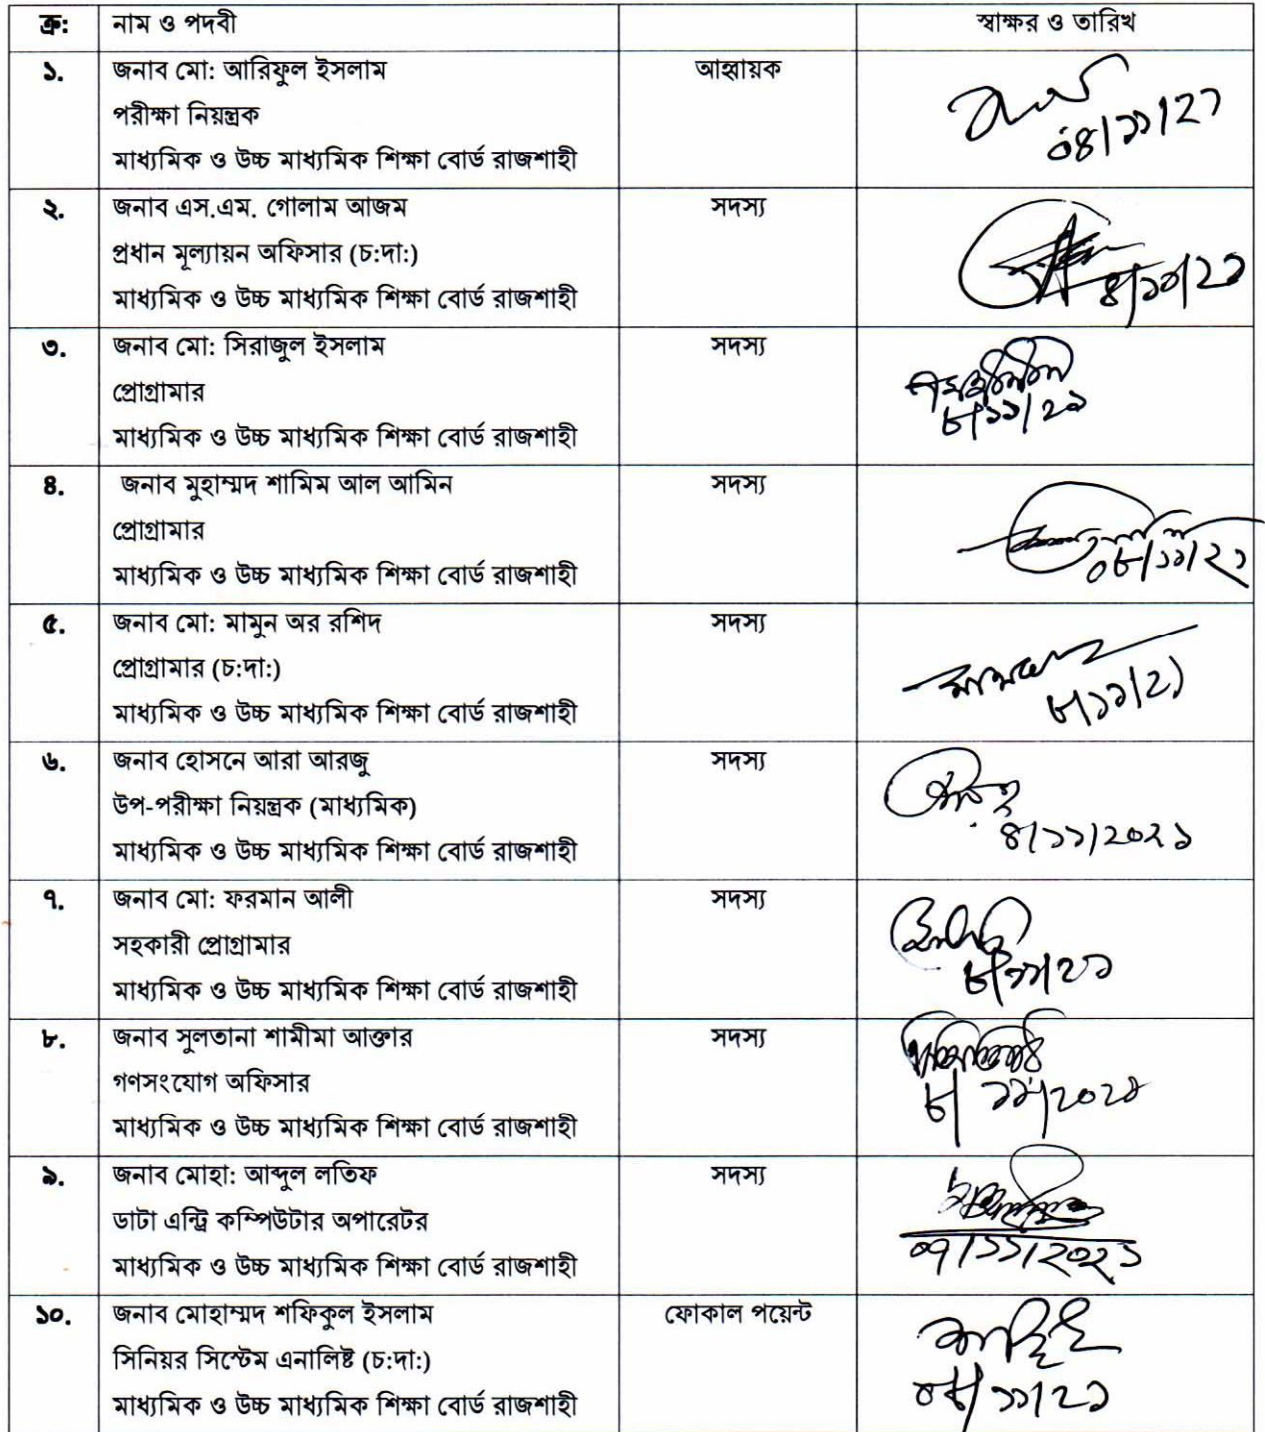 ক্র: নাম ও পদবী স্বাক্ষর ও তারিখ
১. জনাব মো: আরিফুল ইসলাম আহ্বায়ক
পরীক্ষা নিয়ন্ত্রক
মাধ্যমিক ও উচ্চ মাধ্যমিক শিক্ষা বোর্ড রাজশাহী
০৪/১১/২১
২. জনাব এস.এম. গোলাম আজম সদস্য
প্রধান মূল্যায়ন অফিসার (চ:দা:)
মাধ্যমিক ও উচ্চ মাধ্যমিক শিক্ষা বোর্ড রাজশাহী
৩. জনাব মো: সিরাজুল ইসলাম সদস্য
প্রোগ্রামার
৮/১১/২১
মাধ্যমিক ও উচ্চ মাধ্যমিক শিক্ষা বোর্ড রাজশাহী
৪. জনাব মুহাম্মদ শামিম আল আমিন সদস্য
প্রোগ্রামার
মাধ্যমিক ও উচ্চ মাধ্যমিক শিক্ষা বোর্ড রাজশাহী ০৮/১১/২১
৫. জনাব মো: মামুন অর রশিদ সদস্য
প্রোগ্রামার (চ:দা:)
মাধ্যমিক ও উচ্চ মাধ্যমিক শিক্ষা বোর্ড রাজশাহী ৮/১১/২১
৬. জনাব হোসনে আরা আরজু সদস্য
উপ-পরীক্ষা নিয়ন্ত্রক (মাধ্যমিক)
মাধ্যমিক ও উচ্চ মাধ্যমিক শিক্ষা বোর্ড রাজশাহী ৪/১১/২০২১
৭. জনাব মো: ফরমান আলী সদস্য
সহকারী প্রোগ্রামার
মাধ্যমিক ও উচ্চ মাধ্যমিক শিক্ষা বোর্ড রাজশাহী ৮/১১/২১
৮. জনাব সুলতানা শামীমা আক্তার সদস্য
গণসংযোগ অফিসার
মাধ্যমিক ও উচ্চ মাধ্যমিক শিক্ষা বোর্ড রাজশাহী ৮/১১/২০২১
৯. জনাব মোহা: আব্দুল লতিফ সদস্য
ডাটা এন্ট্রি কম্পিউটার অপারেটর
মাধ্যমিক ও উচ্চ মাধ্যমিক শিক্ষা বোর্ড রাজশাহী ০৭/১১/২০২১
১০. জনাব মোহাম্মদ শফিকুল ইসলাম ফোকাল পয়েন্ট
সিনিয়র সিস্টেম এনালিষ্ট (চ:দা:)
মাধ্যমিক ও উচ্চ মাধ্যমিক শিক্ষা বোর্ড রাজশাহী ০৮/১১/২১